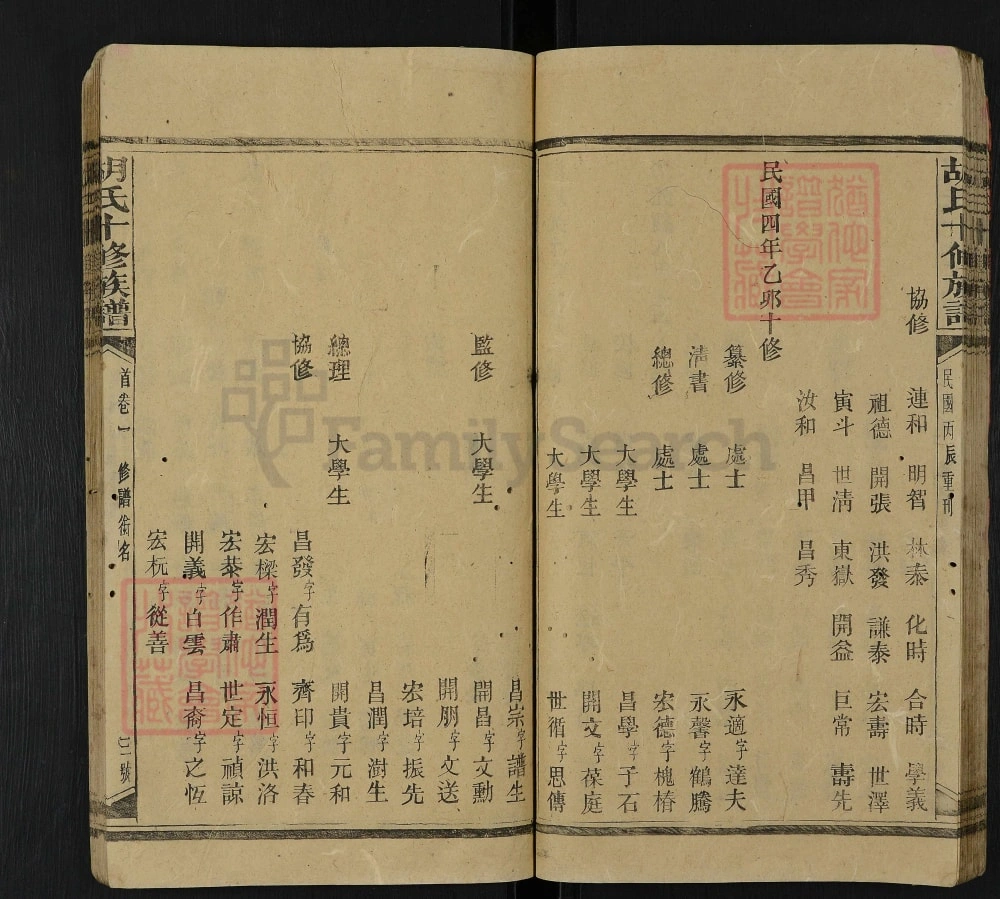 胡氏十修族譜
民國丙辰重刊
協修 連和 明智 林泰 化時 合時 學義
祖德 開張 洪發 謙泰 宏壽 世澤
寅斗 世清 東嶽 開益 巨常 壽先
汝和 昌甲 昌秀
民國四年乙邜十修
纂修 處士 永適字達夫
清書 處士 永馨字鶴騰
總修 處士 宏德字槐椿
大學生 昌學字子石
大學生 開文字葆庭
大學生 世循字思傳
昌崇字譜生
監修 大學生 開昌字文勳
開朋字文送
宏培字振先
昌潤字澍生
總理 大學生 開貴字元和
協修 昌發字有爲 齊印字和春
宏樑字潤生 永恒字洪洛
宏恭字作肅 世定字禎諒
開義字白雲 昌裔字之恆
宏杬字從善
胡氏十修族譜
首卷一 修譜銜名
號
FamilySearch